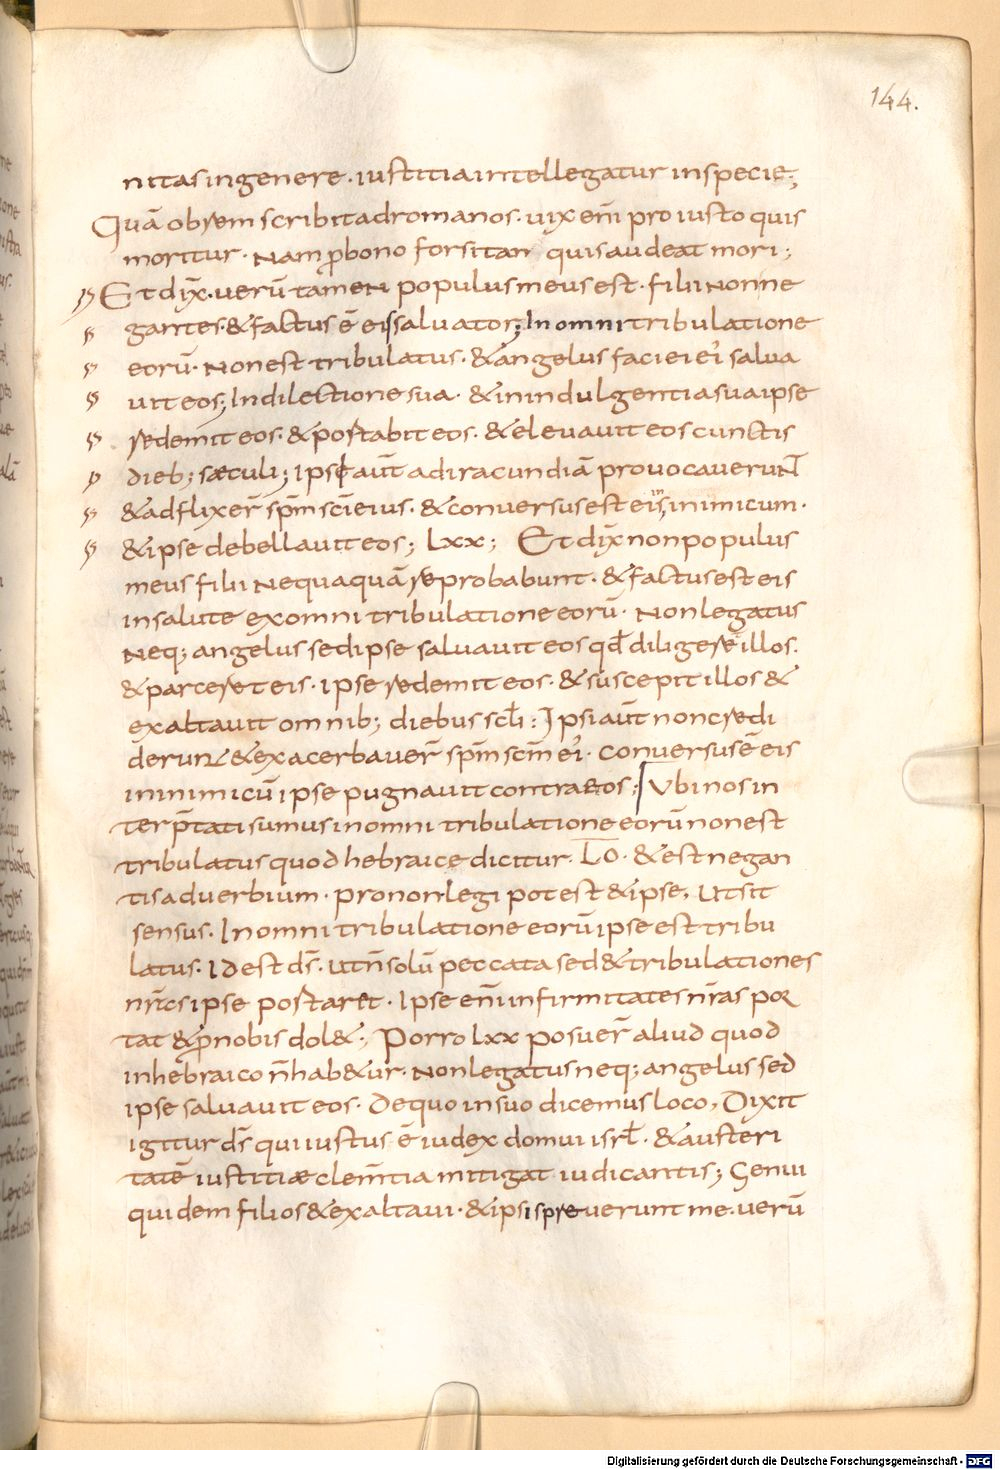 144.
nitas in genere · iustitia intellegatur in specie;
Quā ob rem scribit ad romanos · uix em̄ pro iusto quis
moritur · Nam ꝓ bono forsitan quis audeat mori;
Et dix̄ · uerū tamen populus meus est · filii non ne
gantes · & factus ē eis saluator; In omni tribulatione
eorū · Non est tribulatus · & angelus faciei ei' salua
uit eos; In dilectione sua · & in indulgentia sua ipse
redemit eos · & portabit eos · & eleuauit eos cunctis
dieb; sæculi; ipsi aut̄ ad iracundiā prouocauerunt
& adflixer̄ sp̄m sc̄i eius · & conuersus est eis in inimicum ·
& ipse debellauit eos; Lxx; Et dix̄ non populus
meus filii Nequaquā reprobabunt · & factus est eis
in salute ex omni tribulatione eorū · Non legatus
Neq; angelus sed ipse saluauit eos qd̄ diligeret illos ·
& parceret eis · ipse redemit eos · & suscepit illos &
exaltauit omnib; diebus scl̄i : Ipsi aut̄ non credi
derunt & exacerbauer̄ sp̄m sc̄m ei' · conuersus ē eis
in inimicū ipse pugnauit contra eos; Vbi nos in
terp̄tati sumus in omni tribulatione eorū non est
tribulatus quod hebraice dicitur · LO · & est negan
tis aduerbium · pro non legi potest & ipse, ut sit
sensus · In omni tribulatione eorū ipse est tribu
latus · Id est ds̄ · ut n̄ solū peccata sed & tribulationes
nr̄as ipse portaret · Ipse em̄ infirmitates nr̄as por
tat & ꝓ nobis dol&; Porro Lxx posuer̄ aliud quod
in hebraico n̄ hab&ur · Non legatus neq; angelus sed
ipse saluauit eos · De quo in suo dicemus loco, Dixit
igitur ds̄ qui iustus ē iudex domui isrl̄ · & austeri
tatē iustitiæ clem̄tia mitigat iudicantis; Genui
quidem filios & exaltaui · & ipsi spreuerunt me · uerū
Digitalisierung gefördert durch die Deutsche Forschungsgemeinschaft - DFG